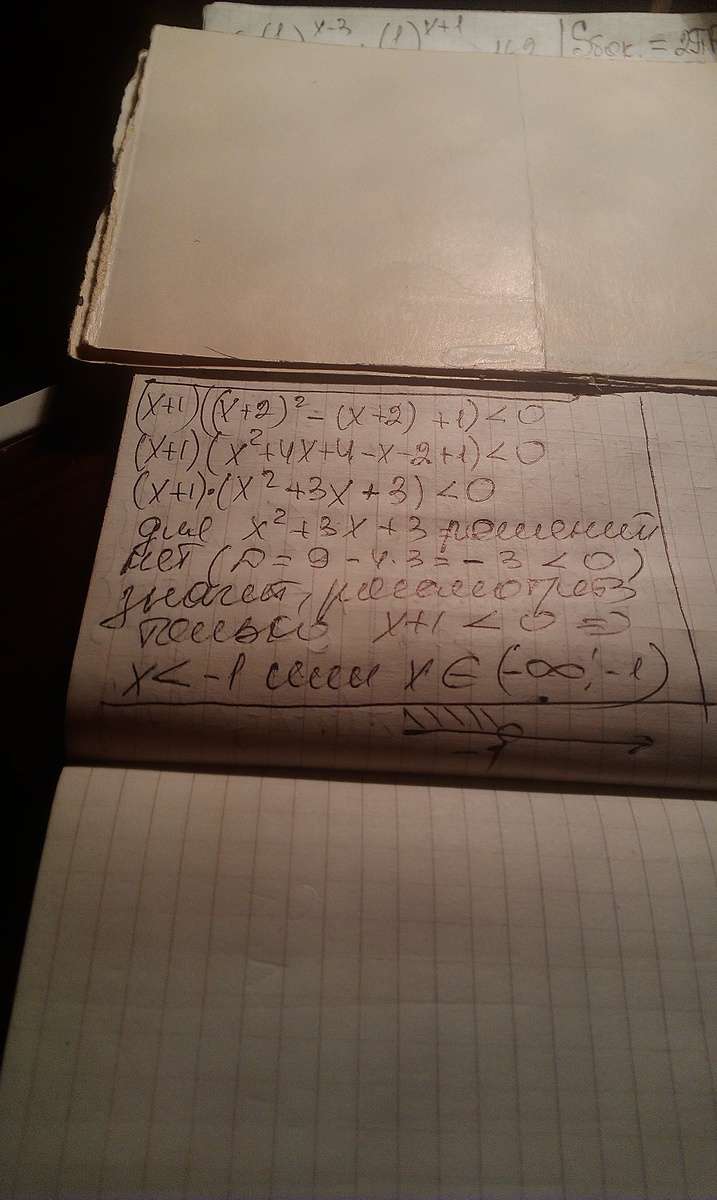 (1)^x-3 (1)^x+1 Sбок. = 2π
(x+1)((x+2)² - (x+2) + 1) < 0
(x+1)(x²+4x+4-x-2+1) < 0
(x+1)·(x²+3x+3) < 0
для x²+3x+3 решений
нет (D = 9 - 4·3 = - 3 < 0)
значит, рассмотрев
только x+1 < 0 =>
x < -1 или x ∈ (-∞; -1)
-1